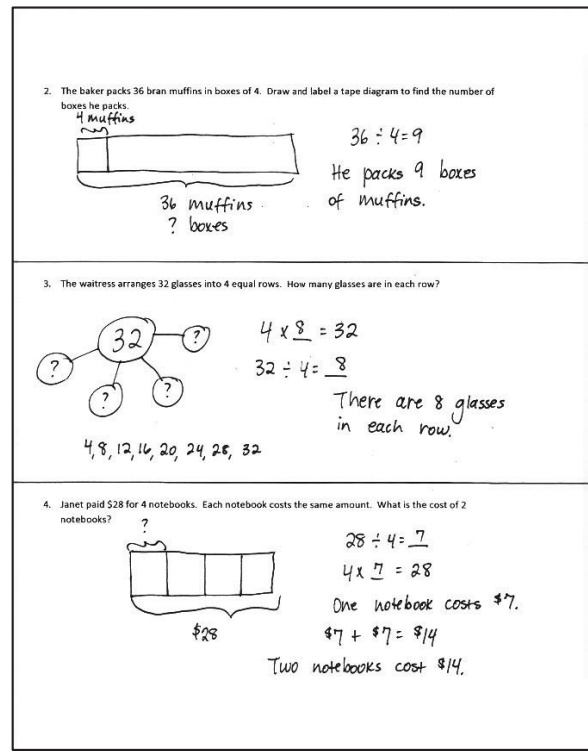 2. The baker packs 36 bran muffins in boxes of 4. Draw and label a tape diagram to find the number of
boxes he packs.
4 muffins
36 ÷ 4 = 9
He packs 9 boxes
of muffins.
36 muffins
? boxes
3. The waitress arranges 32 glasses into 4 equal rows. How many glasses are in each row?
32
?
?
?
?
4 x 8 = 32
32 ÷ 4 = 8
There are 8 glasses
in each row.
4, 8, 12, 16, 20, 24, 28, 32
4. Janet paid $28 for 4 notebooks. Each notebook costs the same amount. What is the cost of 2
notebooks?
?
$28
28 ÷ 4 = 7
4 x 7 = 28
One notebook costs $7.
$7 + $7 = $14
Two notebooks cost $14.